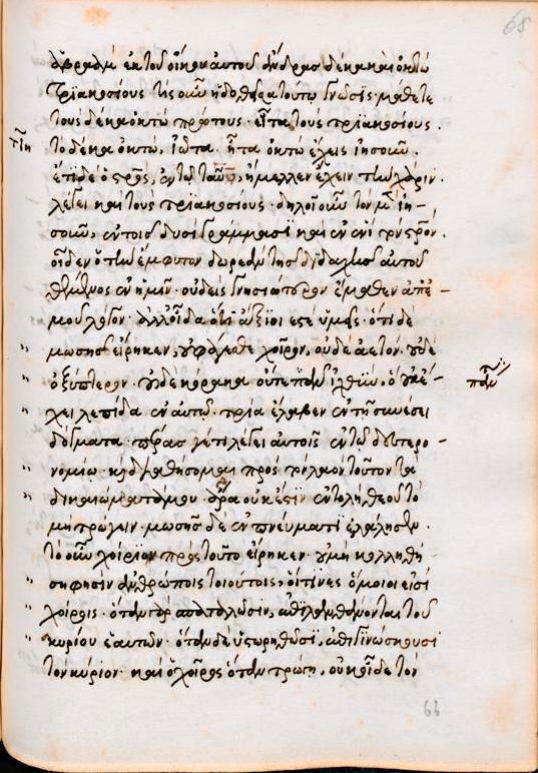 65
ἀβραὰμ ἐκ τοῦ οἴκου αὐτοῦ ἄνδρας δέκα καὶ ὀκτὼ
τριακοσίους· τίς οὖν ἡ δοθεῖσα τούτῳ γνῶσις· μάθετε
τοὺς δέκα ὀκτὼ πρώτους· εἶτα τοὺς τριακοσίους·
τιη
τὸ δέκα ὀκτὼ, ἰῶτα· ἦτα ὀκτὼ ἔχεις ἰησοῦν·
ἔτι δὲ ὁ σρος, ἐν τῷ ταῦ, ἤμελλεν ἔχειν τὴν χάριν·
λέγει καὶ τοὺς τριακοσίους· δηλοῖ οὖν τὸν μὲν ἰη-
σοῦν, ἐν τοῖς δυσὶ γράμμασι καὶ ἐν ἑνὶ τὸν σρον·
οἶδεν ὁ τὴν ἔμφυτον δωρεὰν τῆς διδαχῆς αὐτοῦ
θέμενος ἐν ἡμῖν· οὐδεὶς γνησιώτερον ἔμαθεν ἀπ' ἐ-
μοῦ λόγον· ἀλλ' οἶδα ὅτι ἄξιοι ἐστὲ ὑμεῖς· ὅτι δὲ
μωσῆς εἴρηκεν, οὐ φάγεσθε χοῖρον, οὐδὲ ἀετὸν· οὐδὲ
ὀξύπτερον· οὐδὲ κόρακα οὔτε πὰν ἰχθὺν, ὃ οὐκ ἔ-
χει λεπίδα ἐν αὐτῷ· τρία ἔλαβεν ἐν τῇ συνέσει
δόγματα· πέρας γέ τι λέγει αὐτοῖς ἐν τῷ δευτερο-
νομίῳ· κ διαθήσομαι πρὸς τὸν λαὸν τοῦτον τὰ
δικαιώματά μου· ἆρα οὐκ ἔστιν ἐντολὴ θεοῦ τὸ
μὴ τρώγειν· μωσῆς δὲ ἐν πνεύματι ἐλάλησεν·
τὸ οὖν χοιρίον πρὸς τοῦτο εἴρηκεν· οὐ μὴ κολληθή-
σῃ φησὶν ἀνθρώποις τοιούτοις, οἵτινες ὅμοιοι εἰσὶ
χοίροις· ὅταν γὰρ σπαταλῶσιν, ἐπιλανθάνονται τοῦ
κυρίου ἑαυτῶν· ὅταν δὲ ὑστερηθῶσι, ἐπιγινώσκουσι
τὸν κύριον· καὶ ὁ χοῖρος ὅταν τρώγῃ, οὐκ οἶδε τὸν
66